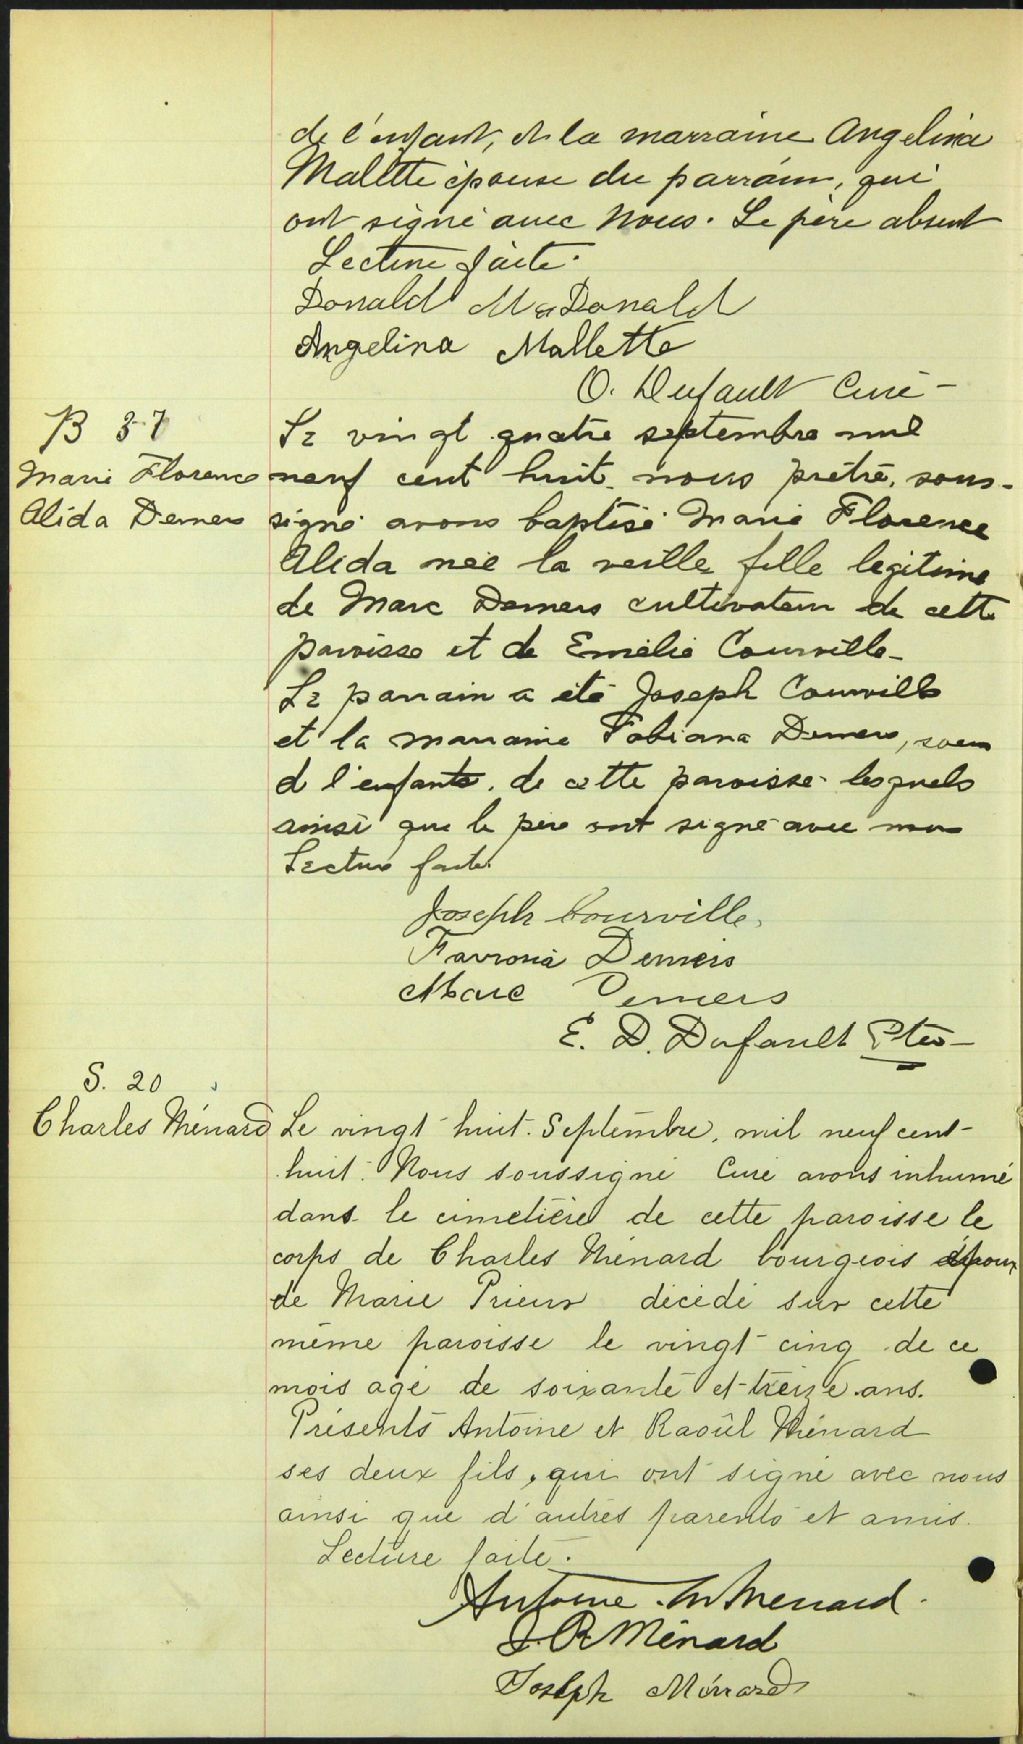 de l'enfant, et la marraine Angelina
Malette épouse du parrain, qui
ont signé avec Nous. Le père absent
Lecture faite.
Donald McDonald
Angelina Mallette
O. Dufault Curé -
B 37
Marie Florence
Alida Demers
Le vingt quatre septembre mil
neuf cent huit nous prêtre, sous-
signé avons baptisé Marie Florence
Alida née la veille fille legitime
de Marc Demers cultivateur de cette
paroisse et de Emélie Courville -
Le parrain a été Joseph Courville
et la marraine Fabiana Demers, soeur
d l'enfante, de cette paroisse lesquels
ainsi que le père ont signé avec nous
Lecture faite.
Joseph Courville,
Demers
Marc Demers
E. D. Dufault Ptre -
S. 20
Charles Ménard
Le vingt huit Septembre, mil neuf cent-
huit. Nous soussigné Curé avons inhumé
dans le cimetière de cette paroisse le
corps de Charles Ménard bourgeois époux
de Marie Prieur décédé sur cette
même paroisse le vingt-cinq de ce
mois agé de soixante et treize ans.
Présents Antoine et Raoûl Ménard
ses deux fils, qui ont signé avec nous
ainsi que d'autres parents et amis.
Lecture faite.
Antoine M Menard.
J. R Ménard
Joseph Ménard